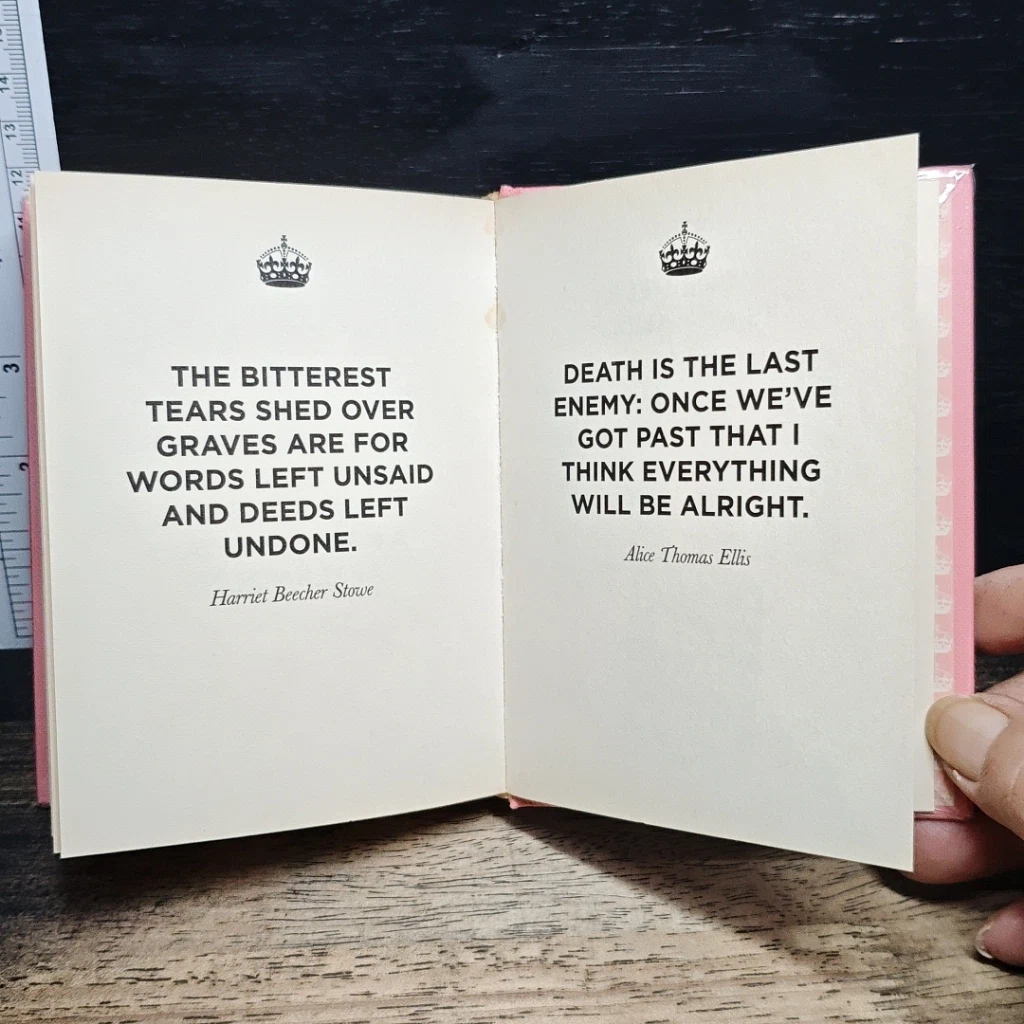 THE BITTEREST
TEARS SHED OVER
GRAVES ARE FOR
WORDS LEFT UNSAID
AND DEEDS LEFT
UNDONE.
Harriet Beecher Stowe
DEATH IS THE LAST
ENEMY: ONCE WE'VE
GOT PAST THAT I
THINK EVERYTHING
WILL BE ALRIGHT.
Alice Thomas Ellis
14
13
12
3
2